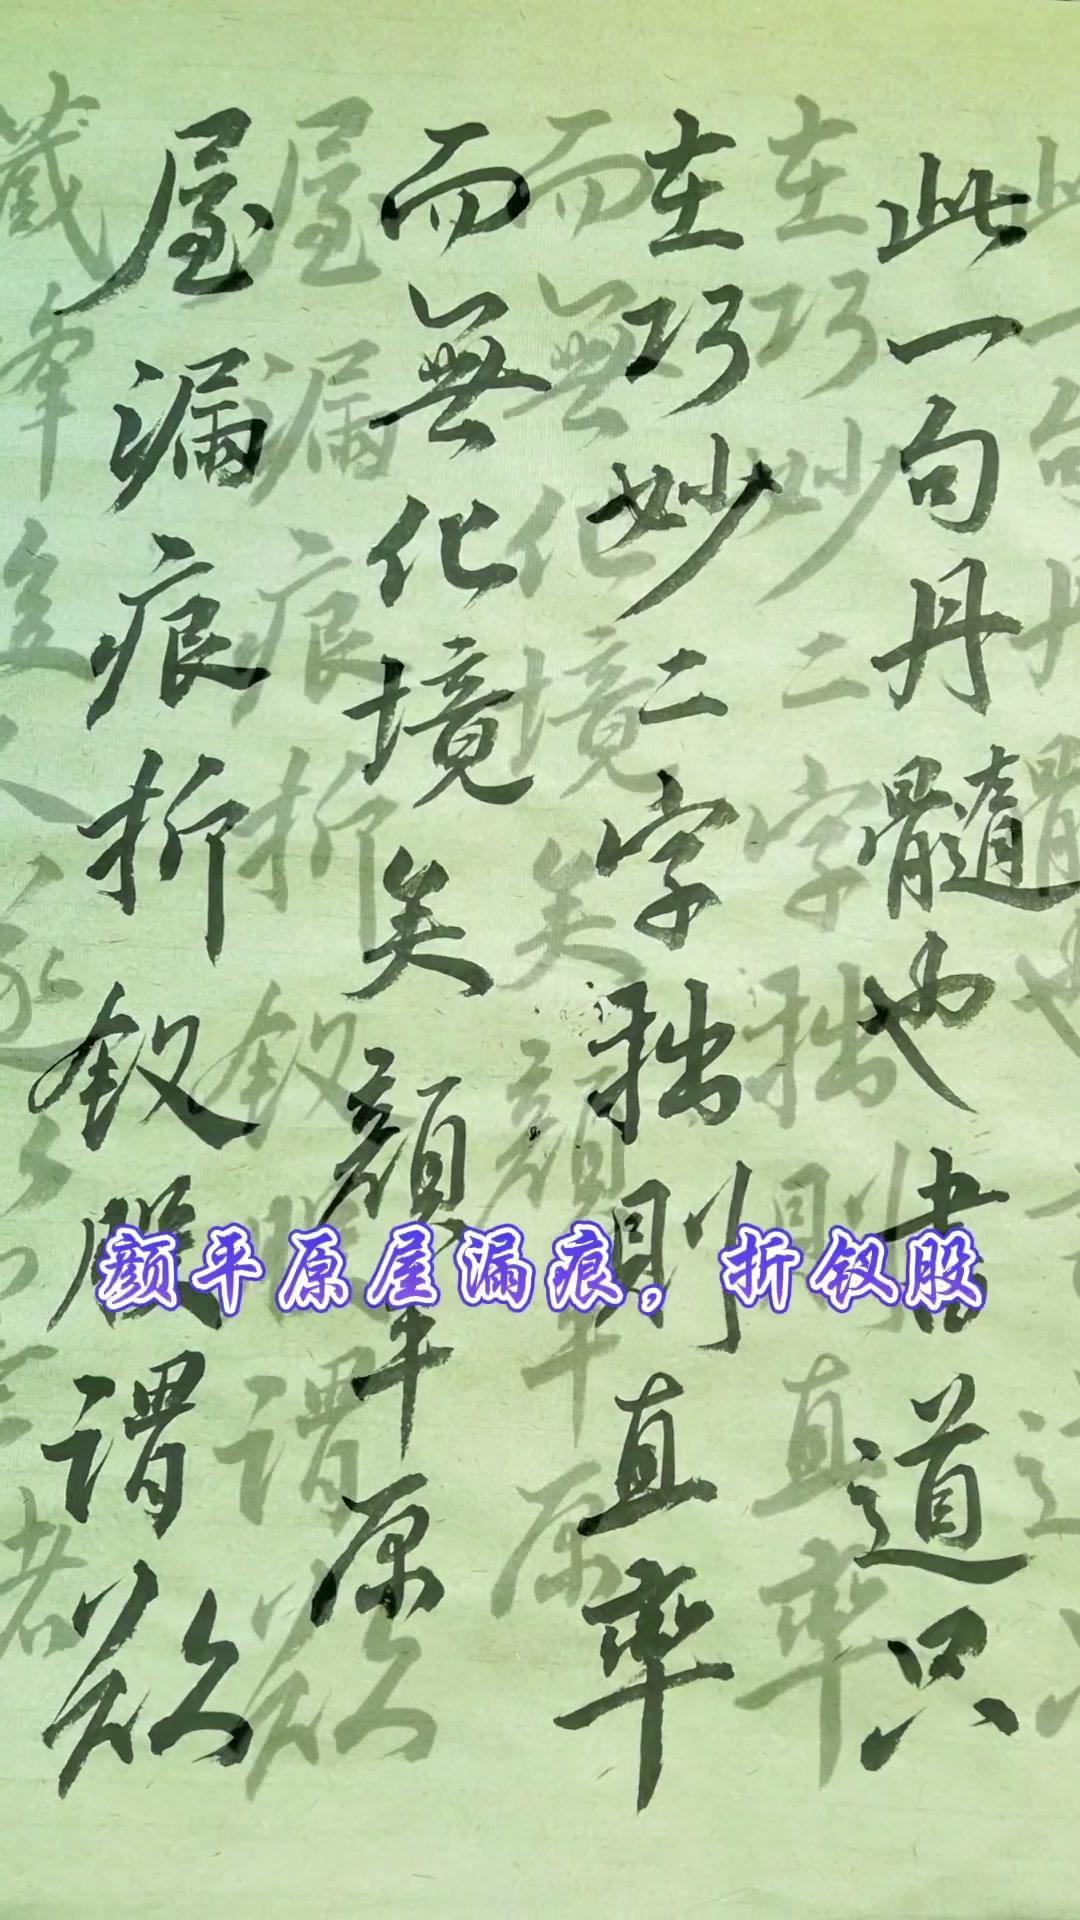 此一句丹髓也書道只
在巧妙二字拙則直率
而無化境矣顏平原
屋漏痕折釵股謂欲
藏筆
颜平原屋漏痕，折钗股